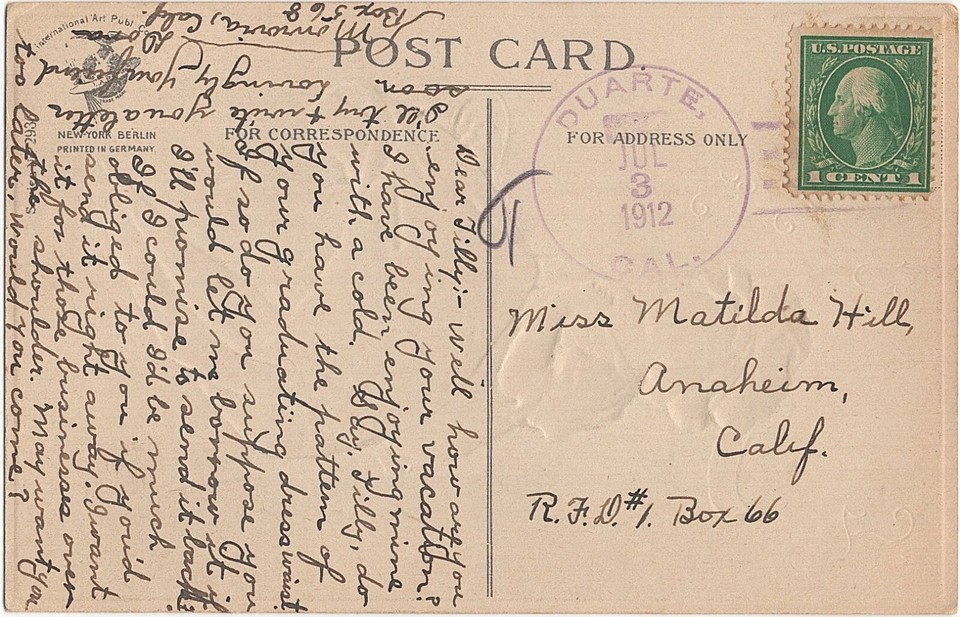 POST CARD.
International Art Publ. Co.
NEW-YORK BERLIN
PRINTED IN GERMANY
FOR CORRESPONDENCE
FOR ADDRESS ONLY
U.S. POSTAGE
1 CENT 1
DUARTE,
JUL
3
1912
CAL.
Miss Matilda Hill,
Anaheim,
Calif.
R.F.D. #1. Box 66
Dear Tilly:- Well how are you
enjoying your vacation?
I have been enjoying mine
with a cold. Say, Tilly, do
you have the pattern of
your graduating dress waist.
If so do you suppose you
would let me borrow it if
I'll promise to send it back?
If I could I'd be much
obliged to you if you'd
send it right away. I want
it for those businesses over
the shoulder. May want you
too later, would you come?
I'll try & write you a letter
soon
Lovingly Your friend
Dora
Monrovia, Calif.
Box 568